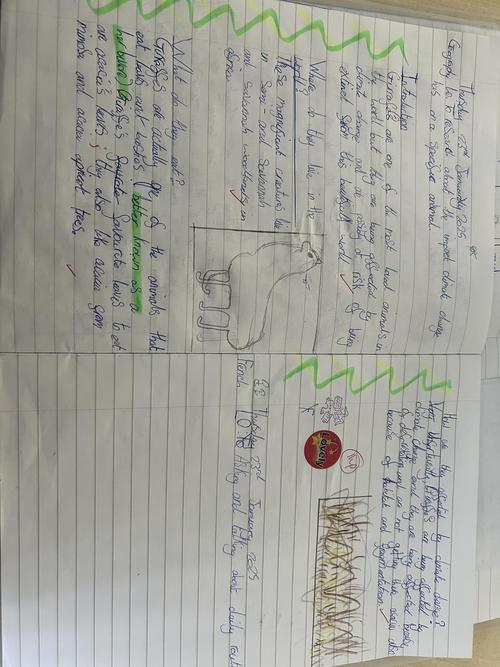 Thursday 23rd January 2025
Geography: to research about the impact climate change
has on a specific animal.
Introduction
Giraffes are one of the most loved animals in
the world but they are being affected by
climate change and are at risk of being
extinct from this beautiful world.
Where do they live in the
world?
These magnificent creatures live
in semi-arid savannah
and savannah woodlands in
africa.
What do they eat?
Giraffes are actually one of the animals that
eat leaves and berries, better known as a
herbivore, Giraffes favourite leaves to eat
are acacia's leaves; they also like acacia
mimosa and apricot trees.
How are they affected by climate change?
Very unfortunately, Giraffes are being affected by
climate change and they are being affected
by deforestation and are not getting there also
because of habitat and fragmentation.
Lovely
Thursday 23rd January 2025
French: Asking and talking about daily